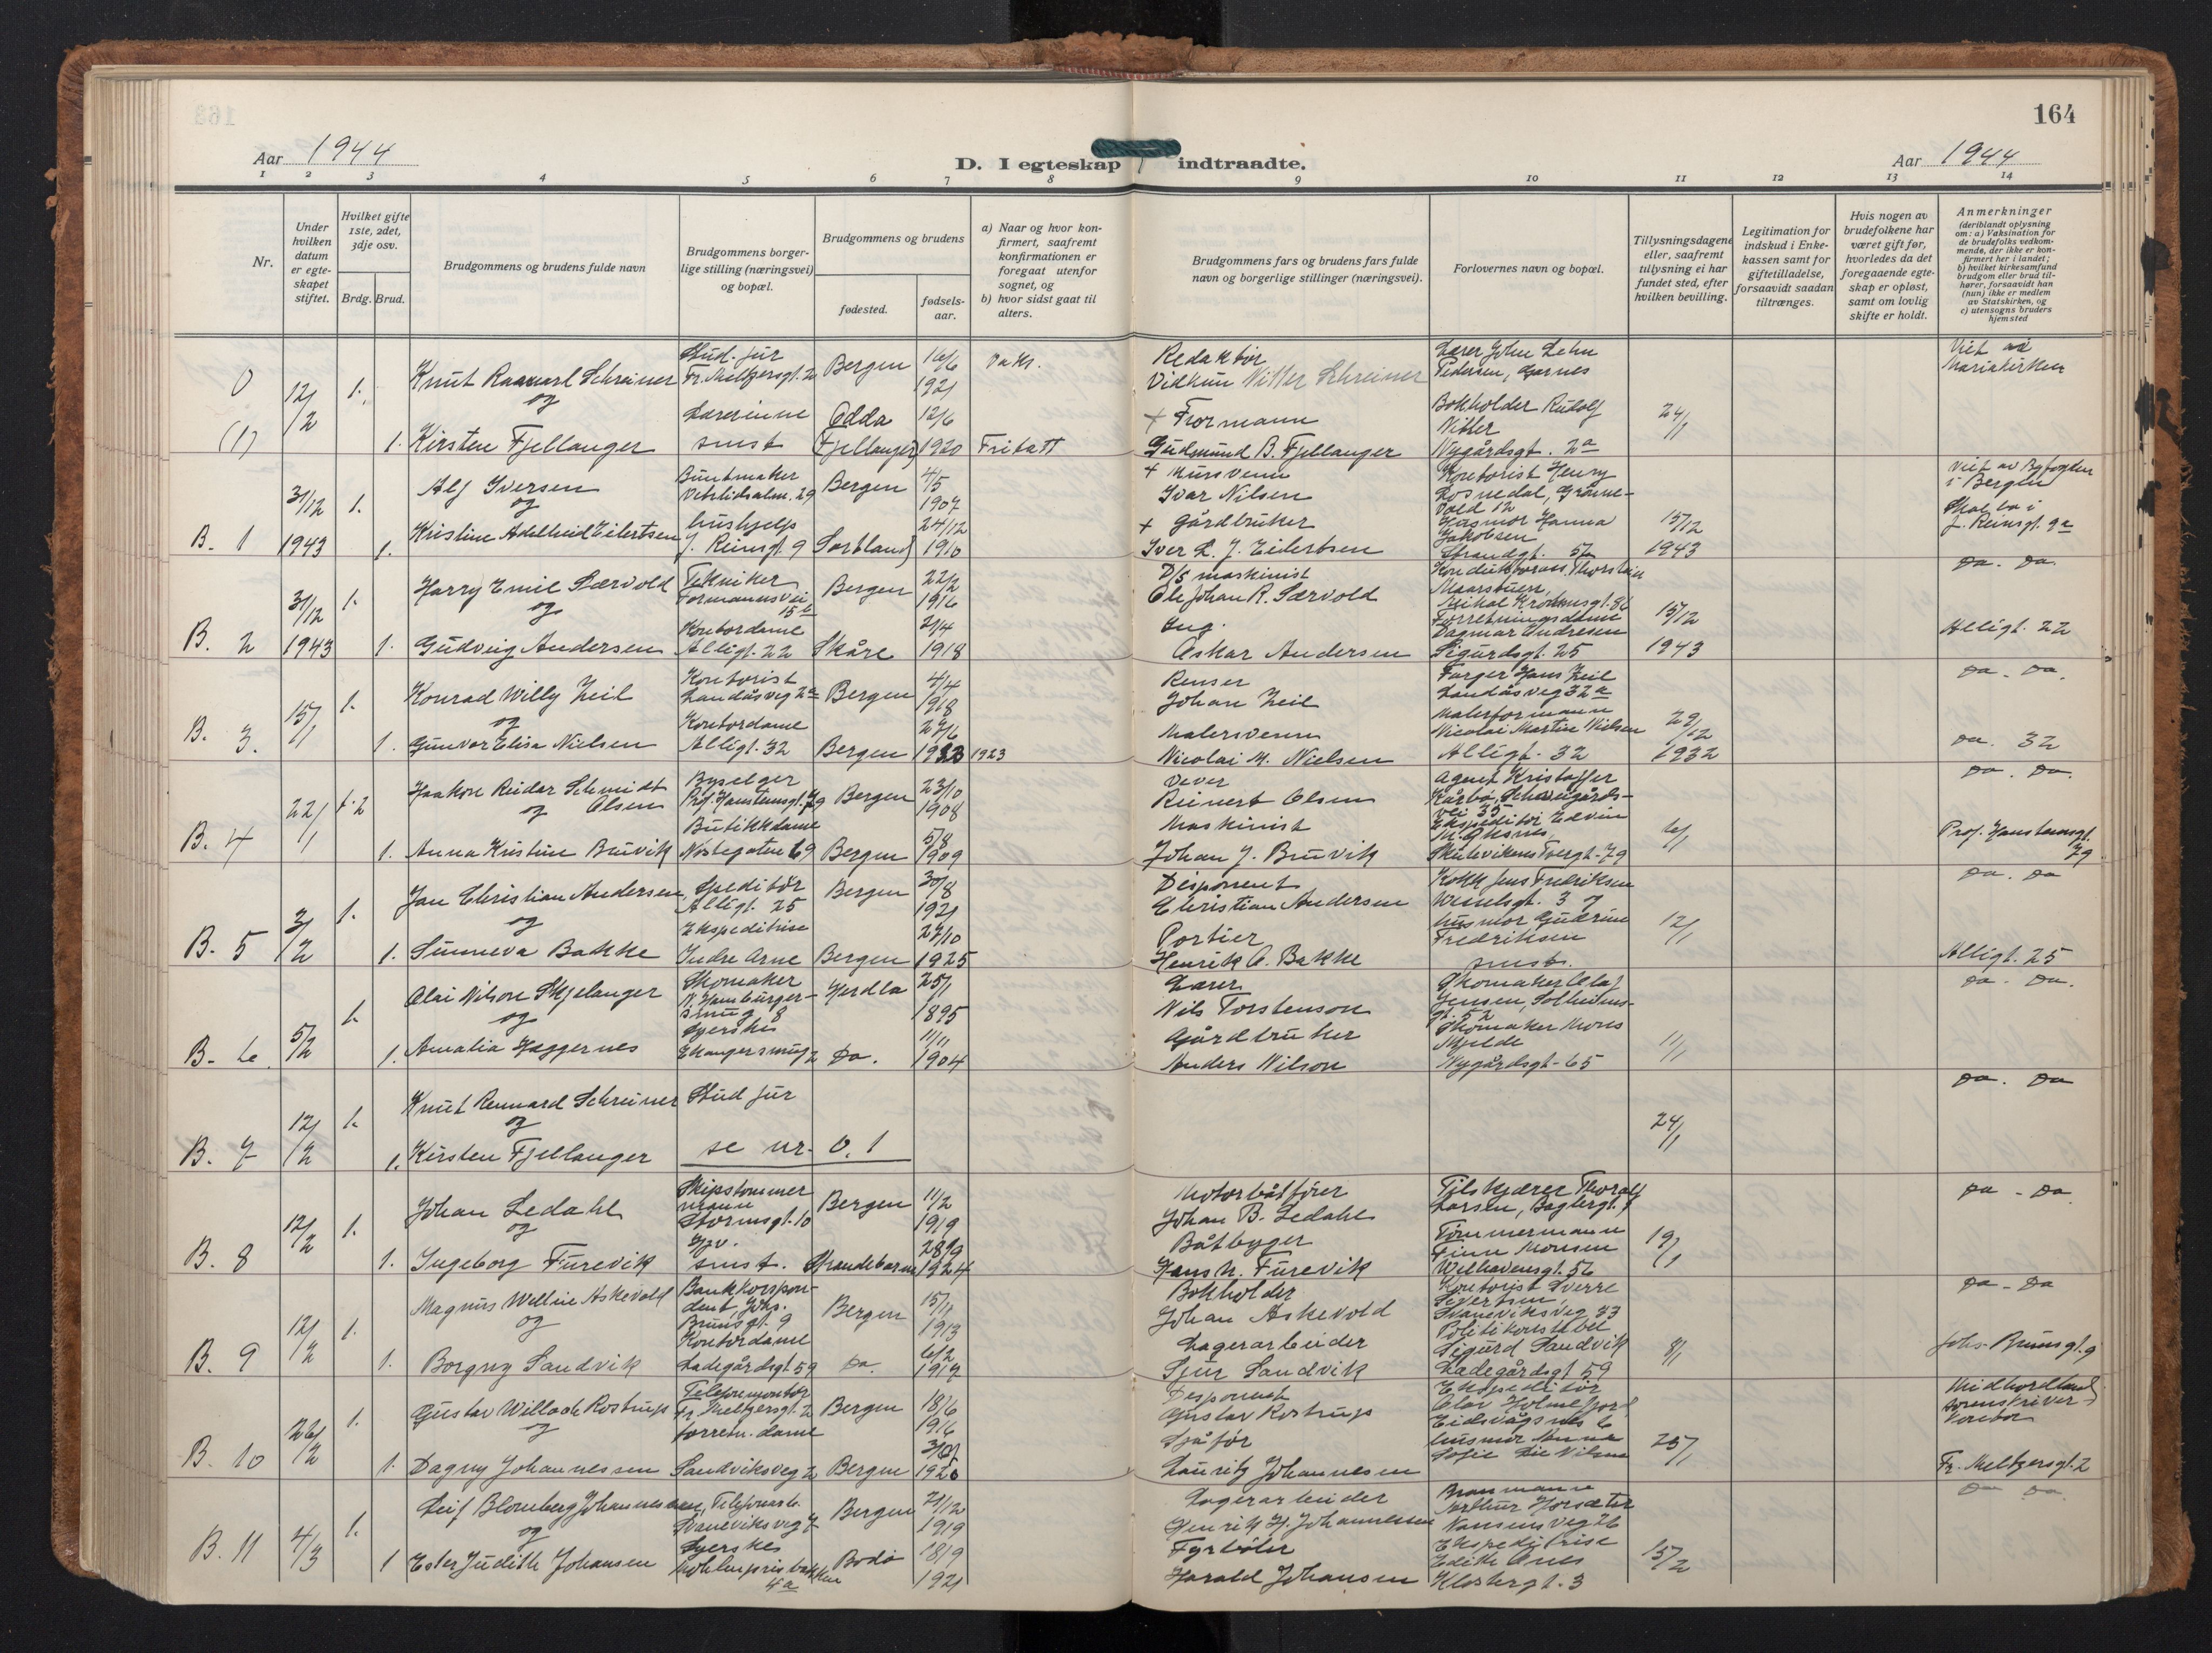 164
Aar 1944
D. I egteskap indtraadte.
Aar 1944
1 2 3 4 5 6 7 8 9 10 11 12 13 14
Nr.
Under hvilken datum er egteskapet stiftet.
Hvilket gifte 1ste, 2det, 3dje osv.
Brdg. Brud.
Brudgommens og brudens fulde navn
Brudgommens borgerlige stilling (næringsvei) og bopæl.
Brudgommens og brudens
fødested.
fødselsaar.
a) Naar og hvor konfirmert, saafremt konfirmationen er foregaat utenfor sognet, og
b) hvor sidst gaat til alters.
Brudgommens fars og brudens fars fulde navn og borgerlige stillinger (næringsvei).
Forlovernes navn og bopæl.
Tillysningsdagene eller, saafremt tillysning ei har fundet sted, efter hvilken bevilling.
Legitimation for indskud i Enkekassen samt for giftetilladelse, forsaavidt saadan tiltrænges.
Hvis nogen av brudefolkene har været gift før, hvorledes da det foregaaende egteskap er opløst, samt om lovlig skifte er holdt.
Anmerkninger (deriblandt oplysning om: a) Vaksination for de brudefolks vedkommende, der ikke er konfirmert her i landet; b) hvilket kirkesamfund brudgom eller brud tilhører, forsaavidt han (hun) ikke er medlem av Statskirken, og c) utensogns bruders hjemsted
0 (1) 12/2 1. Stud. jur Fr. Meltzersgt. 2 Bergen 16/6 1921 Vaks.
Knut Schreiner
og
1. Kirsten Fjellanger Lærerinne smst Odda (Fjellanger) 12/6 1920 Fritatt
Redaktør Vidkun Nitter Schreiner
+ Formann Gudmund B. Fjellanger
Lærer John Lehn Pedersen, Garnes
Bokholder Rudolf Nitter Nygårdsgt. 2a
24/1
Viet av Mariakirken
B. 1 31/12 1943 1. Alf Iversen Buntmaker Vetrlidsalm. 29 Bergen 4/5 1907
og
1. Kristine Adelheid Eilertsen hushjelp J. Reinsgt. 9 Sortland 24/12 1910
+ Mursvenn Ivar Nilsen
+ Gårdbruker Iver L. J. Eilertsen
Kontorist Henry Losnedal,
Husmor Hanna Jakobsen Strandgt. 57
15/12 1943
Viet av Byfogden i Bergen
J. Reinsgt. 9a
B. 2 31/12 1943 1. Harry Emil Særvold Tekniker Formannsvei 15b Bergen 22/2 1916
og
1. Gudveig Andersen Kontordame Alligt. 22 Skåre 2/4 1918
D/s maskinist Ole Johan R. Særvold
Ing. Oskar Andersen
Mikal Krohnsgt. 86
Forretningsdame Dagmar Andresen Sigurdsgt. 25
15/12 1943
Do. Do.
Alligt. 22
B. 3. 15/1 1. Konrad Willy Zeil Kontorist Landåsveg 32a Bergen 4/4 1918
og
1. Gunvor Elisa Nielsen Kontordame Alligt. 32 Bergen 27/6 1923 1923
Renser Johan Zeil
Malersvenn Nicolai M. Nielsen
Farger Hans Zeil Landåsveg 32a
Malerformann Nicolai Martin Nielsen Alligt. 32
29/12 1932
Do. Do.
Do. 32
B. 4 22/1 Haakon Reidar Schmidt Olsen Byselger Prof. Hansteensgt. 79 Bergen 23/10 1908
og
1. Anna Kristine Bruvik Butikkdame Nøstegaten 69 Bergen 5/8 1909
Vever Reinert Olsen
Maskinist Johan J. Bruvik
Agent Kristoffer Kårbø,
Ekspeditør Edvin Skuteviken Torgt. 79
6/1
Do. Do.
Prof. Hansteensgt. 79
B. 5 3/2 1. Jan Christian Andersen Speditør Alligt. 25 Bergen 30/8 1921
og
1. Sunneva Bakke Ekspeditrise Indre Arne Bergen 27/10 1925
Disponent Christian Andersen
Portier Henrik O. Bakke
Kokk Jens Fredriksen Wesselsgt. 3
husmor Gudrun Fredriksen smst.
12/1
Do. Do
Alligt. 25
B. 6. 5/2 1. Olai Nilson Skjelanger Skomaker N. Hamburgersmug 8 Herdla 25/1 1895
og
1. Amalia Hæggernes Syerske Ekangersmug 2 Do. 11/11 1904
Lærer Nils Torstenson
Gårdbruker Anders Nilson
Skomaker Olaf Jensen, Solheimsgt. 52
Skomaker Mons Mjelde Nygårdsgt. 65
11/1
Do. Do.
B. 7 12/2 1. Knut Rennard Schreiner Stud jur
og
1. Kirsten Fjellanger se nr. 0.1
24/1
Do. Do
B. 8 12/2 1. Johan Ledahl Skipstømmermann Stormsgt. 10 Bergen 11/2 1919
og
1. Ingeborg Furevik smst. Strandebarm 28/9 1924
Motorbåtfører Johan B. Ledahl
Båtbyger Hans N. Furevik
Tilskjærer Thoralf Larsen, Baglergt. 9
Tømmermann Finn Monsen Welhavensgt. 56
19/1
Do - Do.
B. 9 12/2 1. Magnus Welline Askevold Bankkorspondent Johs. Brunsgt. 9 Bergen 15/11 1913
og
1. Borgny Sandvik Kontordame Ladegårdsgt. 59 Do. 6/2 1917
Bokholder Johan Askevold
Lagerarbeider Sjur Sandvik
Kontorist Sverre Sivertsen Svaneviksveg 43
Politikonstbel Sigurd Sandvik Ladegårdsgt 59
8/1
Do - Do
Johs. Brunsgt. 9
B. 10 26/2 1. Gustav Willoch Rostrup Telefonmontør Fr. Meltzersgt. 2 Bergen 18/6 1916
og
1. Dagny Johannessen forretn. dame Sandviksveg 2 Bergen 1920
Disponent Gustav Rostrup
Sjåfør Lauritz Johannesen
Ekspeditør Olav Holmefjord Eidsvågsnes 6
husmor Anna Sofie Lie Nilsen
25/1
Midhordland sorenskriver kontor
Fr. Meltzersgt. 2
B. 11 4/3 1. Leif Blomberg Johannessen, Telefonarb. Svaneviksveg 7 Bergen 21/12 1919
og
1 Ester Judith Johansen Syerske Møhlenprisbakken 4a Bodø 18/9 1921
Lagerarbeider Henrik H. Johannessen
Fyrbøter Harald Johansen
Brannmann Arthur Horsæter Nansensveg 26
Ekspeditrise Edith Ones Klostergt. 3
15/2
Do Do.